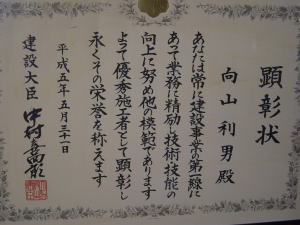 顕彰状
向山利男殿
あなたは常に建設事業の第一線に
あって業務に精励し技術技能の
向上に努め他の模範であります
よって優秀施工者として顕彰し
永くその栄誉を称えます
平成五年五月三十一日
建設大臣 中村喜四郎